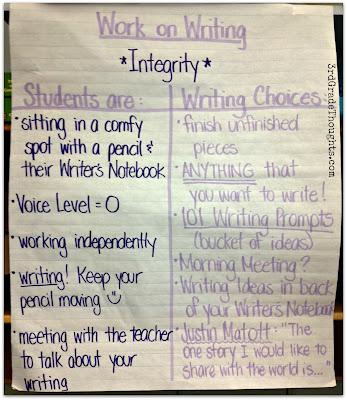 Work on Writing
*Integrity*
Students are:
• sitting in a comfy
spot with a pencil &
their Writer's Notebook
• Voice Level = 0
• working independently
• writing! Keep your
pencil moving
• meeting with the teacher
to talk about your
writing
Writing Choices:
• finish unfinished
pieces
• ANYTHING that
you want to write!
• 101 Writing Prompts
(bucket of ideas)
• Morning Meeting?
• Writing Ideas in back
of your Writer's Notebook
• Justin Matott: "The
one story I would like to
share with the world is..."
3rdGradeThoughts.com